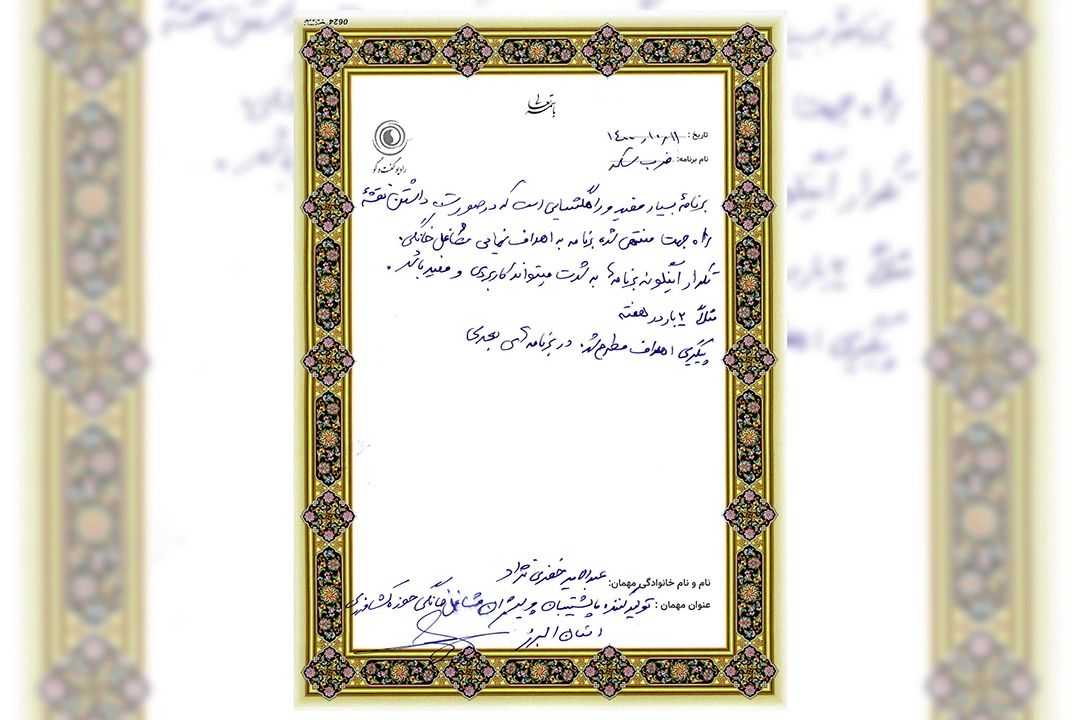 باسمه تعالی
رادیو گفت و گو
تاریخ: ۱۴۰۰،۱۰،۱۱
نام برنامه: ضرب سکه
برنامهٔ بسیار مفید و راهگشایی است که در صورت داشتن نقشهٔ
راه جهت منتهی شدن برنامه به اهداف نهایی مشاغل خانگی.
تکرار اینگونه برنامه ها به شدت میتواند کاربردی و مفید باشد.
مثلاً ۲ بار در هفته
پیگیری اهداف مطرح شده در برنامه های بعدی
نام و نام خانوادگی مهمان: عبدالامیر جعفری نژاد
عنوان مهمان: تولید کننده پشتیبان و پیشران مشاغل خانگی حوزه کشاورزی
استان البرز